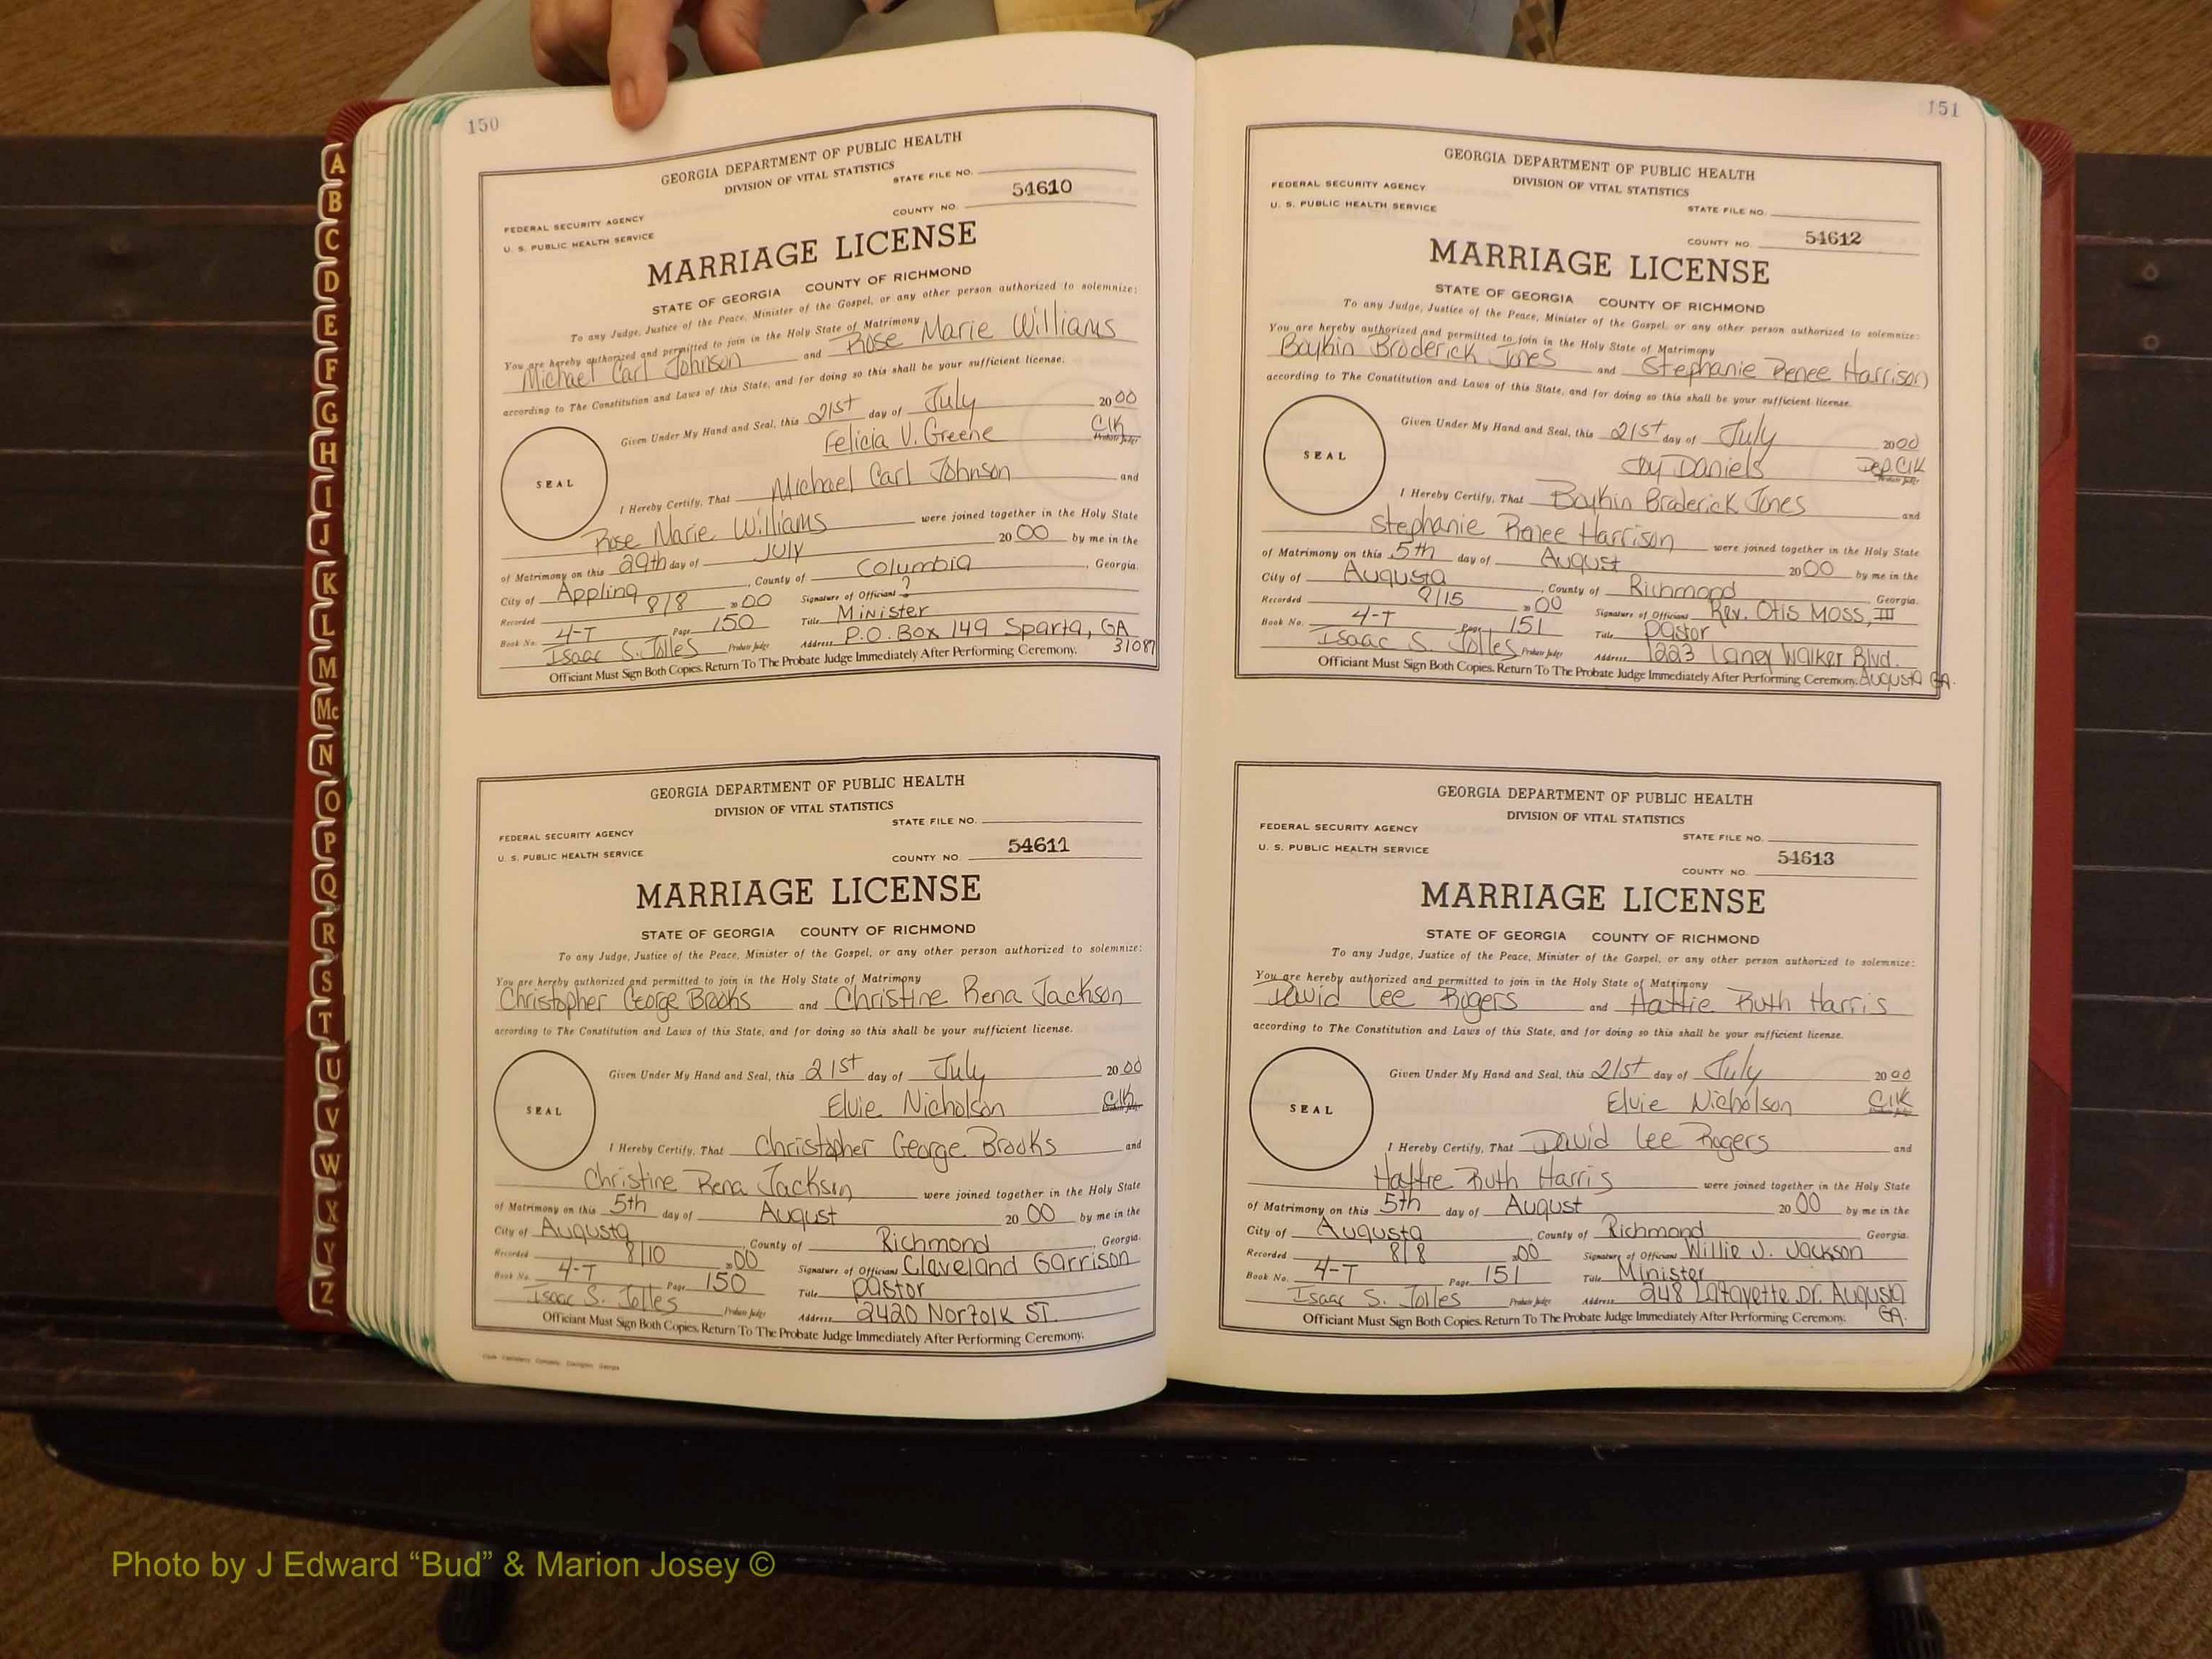 150
GEORGIA DEPARTMENT OF PUBLIC HEALTH
DIVISION OF VITAL STATISTICS
STATE FILE NO.
FEDERAL SECURITY AGENCY
U. S. PUBLIC HEALTH SERVICE
COUNTY NO. 54610
MARRIAGE LICENSE
STATE OF GEORGIA COUNTY OF RICHMOND
To any Judge, Justice of the Peace, Minister of the Gospel, or any other person authorized to solemnize:
You are hereby authorized and permitted to join in the Holy State of Matrimony
Michael Carl Johnson and Rose Marie Williams
according to The Constitution and Laws of this State, and for doing so this shall be your sufficient license.
Given Under My Hand and Seal, this 21st day of July 2000
Felicia V. Greene Clk
Probate Judge
SEAL
I Hereby Certify, That Michael Carl Johnson and
Rose Marie Williams were joined together in the Holy State
of Matrimony on this 29th day of July 2000 by me in the
City of Appling, County of Columbia, Georgia.
Recorded 8/8 2000 Signature of Officiant ?
Book No. 4-T Page 150 Title Minister
Isaac S. Jolles Probate Judge Address P.O. Box 149 Sparta, GA
31087
Officiant Must Sign Both Copies. Return To The Probate Judge Immediately After Performing Ceremony.
GEORGIA DEPARTMENT OF PUBLIC HEALTH
DIVISION OF VITAL STATISTICS
STATE FILE NO.
FEDERAL SECURITY AGENCY
U. S. PUBLIC HEALTH SERVICE
COUNTY NO. 54611
MARRIAGE LICENSE
STATE OF GEORGIA COUNTY OF RICHMOND
To any Judge, Justice of the Peace, Minister of the Gospel, or any other person authorized to solemnize:
You are hereby authorized and permitted to join in the Holy State of Matrimony
Christopher George Brooks and Christine Rena Jackson
according to The Constitution and Laws of this State, and for doing so this shall be your sufficient license.
Given Under My Hand and Seal, this 21st day of July 2000
Elvie Nicholson Clk
SEAL
I Hereby Certify, That Christopher George Brooks and
Christine Rena Jackson were joined together in the Holy State
of Matrimony on this 5th day of August 2000 by me in the
City of Augusta, County of Richmond, Georgia.
Recorded 8/10 2000 Signature of Officiant Cleveland Garrison
Book No. 4-T Page 150 Title Pastor
Isaac S. Jolles Probate Judge Address 2420 Norfolk ST.
Officiant Must Sign Both Copies. Return To The Probate Judge Immediately After Performing Ceremony.
151
GEORGIA DEPARTMENT OF PUBLIC HEALTH
DIVISION OF VITAL STATISTICS
FEDERAL SECURITY AGENCY
U. S. PUBLIC HEALTH SERVICE
STATE FILE NO.
COUNTY NO. 54612
MARRIAGE LICENSE
STATE OF GEORGIA COUNTY OF RICHMOND
To any Judge, Justice of the Peace, Minister of the Gospel, or any other person authorized to solemnize:
You are hereby authorized and permitted to join in the Holy State of Matrimony
Boykin Broderick Jones and Stephanie Renee Harrison
according to The Constitution and Laws of this State, and for doing so this shall be your sufficient license.
Given Under My Hand and Seal, this 21st day of July 2000
Joy Daniels Dep. Clk
Probate Judge
SEAL
I Hereby Certify, That Boykin Broderick Jones and
Stephanie Renee Harrison were joined together in the Holy State
of Matrimony on this 5th day of August 2000 by me in the
City of Augusta, County of Richmond Georgia.
Recorded 8/15 2000 Signature of Officiant Rev. Otis Moss, III
Book No. 4-T Page 151 Title Pastor
Isaac S. Jolles Probate Judge Address 1223 Laney Walker Blvd.
Officiant Must Sign Both Copies. Return To The Probate Judge Immediately After Performing Ceremony. Augusta GA.
GEORGIA DEPARTMENT OF PUBLIC HEALTH
DIVISION OF VITAL STATISTICS
FEDERAL SECURITY AGENCY
U. S. PUBLIC HEALTH SERVICE
STATE FILE NO.
COUNTY NO. 54613
MARRIAGE LICENSE
STATE OF GEORGIA COUNTY OF RICHMOND
To any Judge, Justice of the Peace, Minister of the Gospel, or any other person authorized to solemnize:
You are hereby authorized and permitted to join in the Holy State of Matrimony
David Lee Rogers and Hattie Ruth Harris
according to The Constitution and Laws of this State, and for doing so this shall be your sufficient license.
Given Under My Hand and Seal, this 21st day of July 2000
Elvie Nicholson Clk
SEAL
I Hereby Certify, That David Lee Rogers and
Hattie Ruth Harris were joined together in the Holy State
of Matrimony on this 5th day of August 2000 by me in the
City of Augusta County of Richmond Georgia.
Recorded 8/8 2000 Signature of Officiant Willie J. Jackson
Book No. 4-T Page 151 Title Minister
Isaac S. Jolles Probate Judge Address 248 Lafayette Dr. Augusta
GA.
Officiant Must Sign Both Copies. Return To The Probate Judge Immediately After Performing Ceremony.
A
B
C
D
E
F
G
H
I
J
K
L
M
Mc
N
O
P
Q
R
S
T
U
V
W
X
Y
Z
Photo by J Edward “Bud” & Marion Josey ©